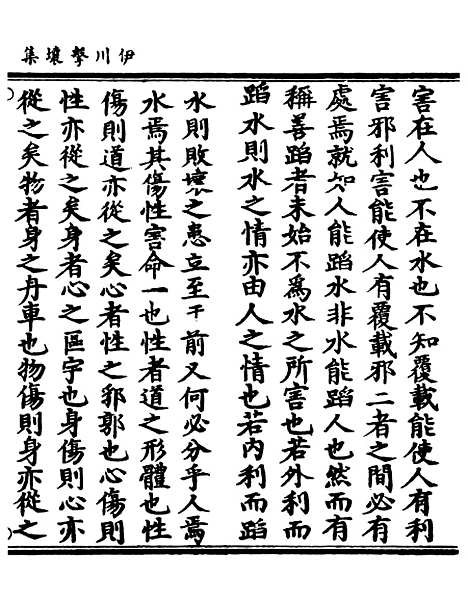 伊川擊壤集
害在人也不在水也不知覆載能使人有利
害邪利害能使人有覆載邪二者之間必有
處焉就如人能蹈水非水能蹈人也然而有
稱善蹈者未始不為水之所害也若外利而
蹈水則水之情亦由人之情也若內利而蹈
水則敗壞之患立至于前又何必分乎人焉
水焉其傷性害命一也性者道之形體也性
傷則道亦從之矣心者性之郛郭也心傷則
性亦從之矣身者心之區宇也身傷則心亦
從之矣物者身之舟車也物傷則身亦從之